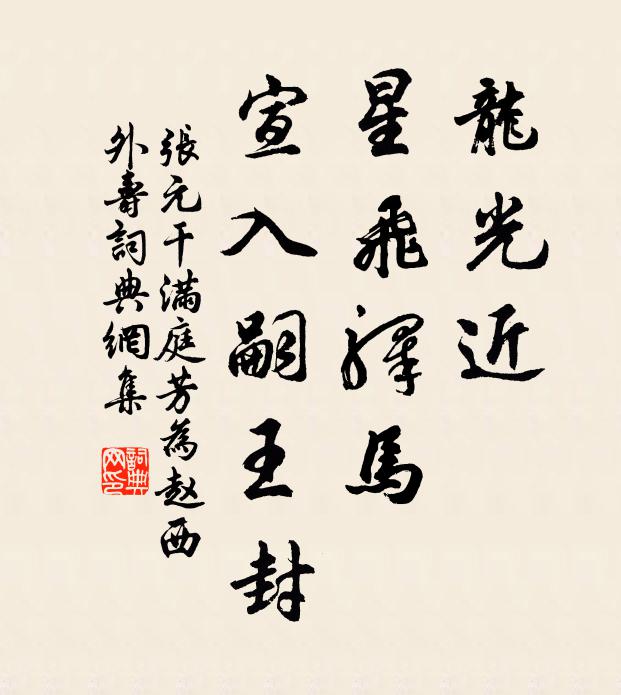 龍光近
星飛驛馬
宣入嗣王封
張元干滿庭芳為赵西
外壽詞典網集
詞典
网印